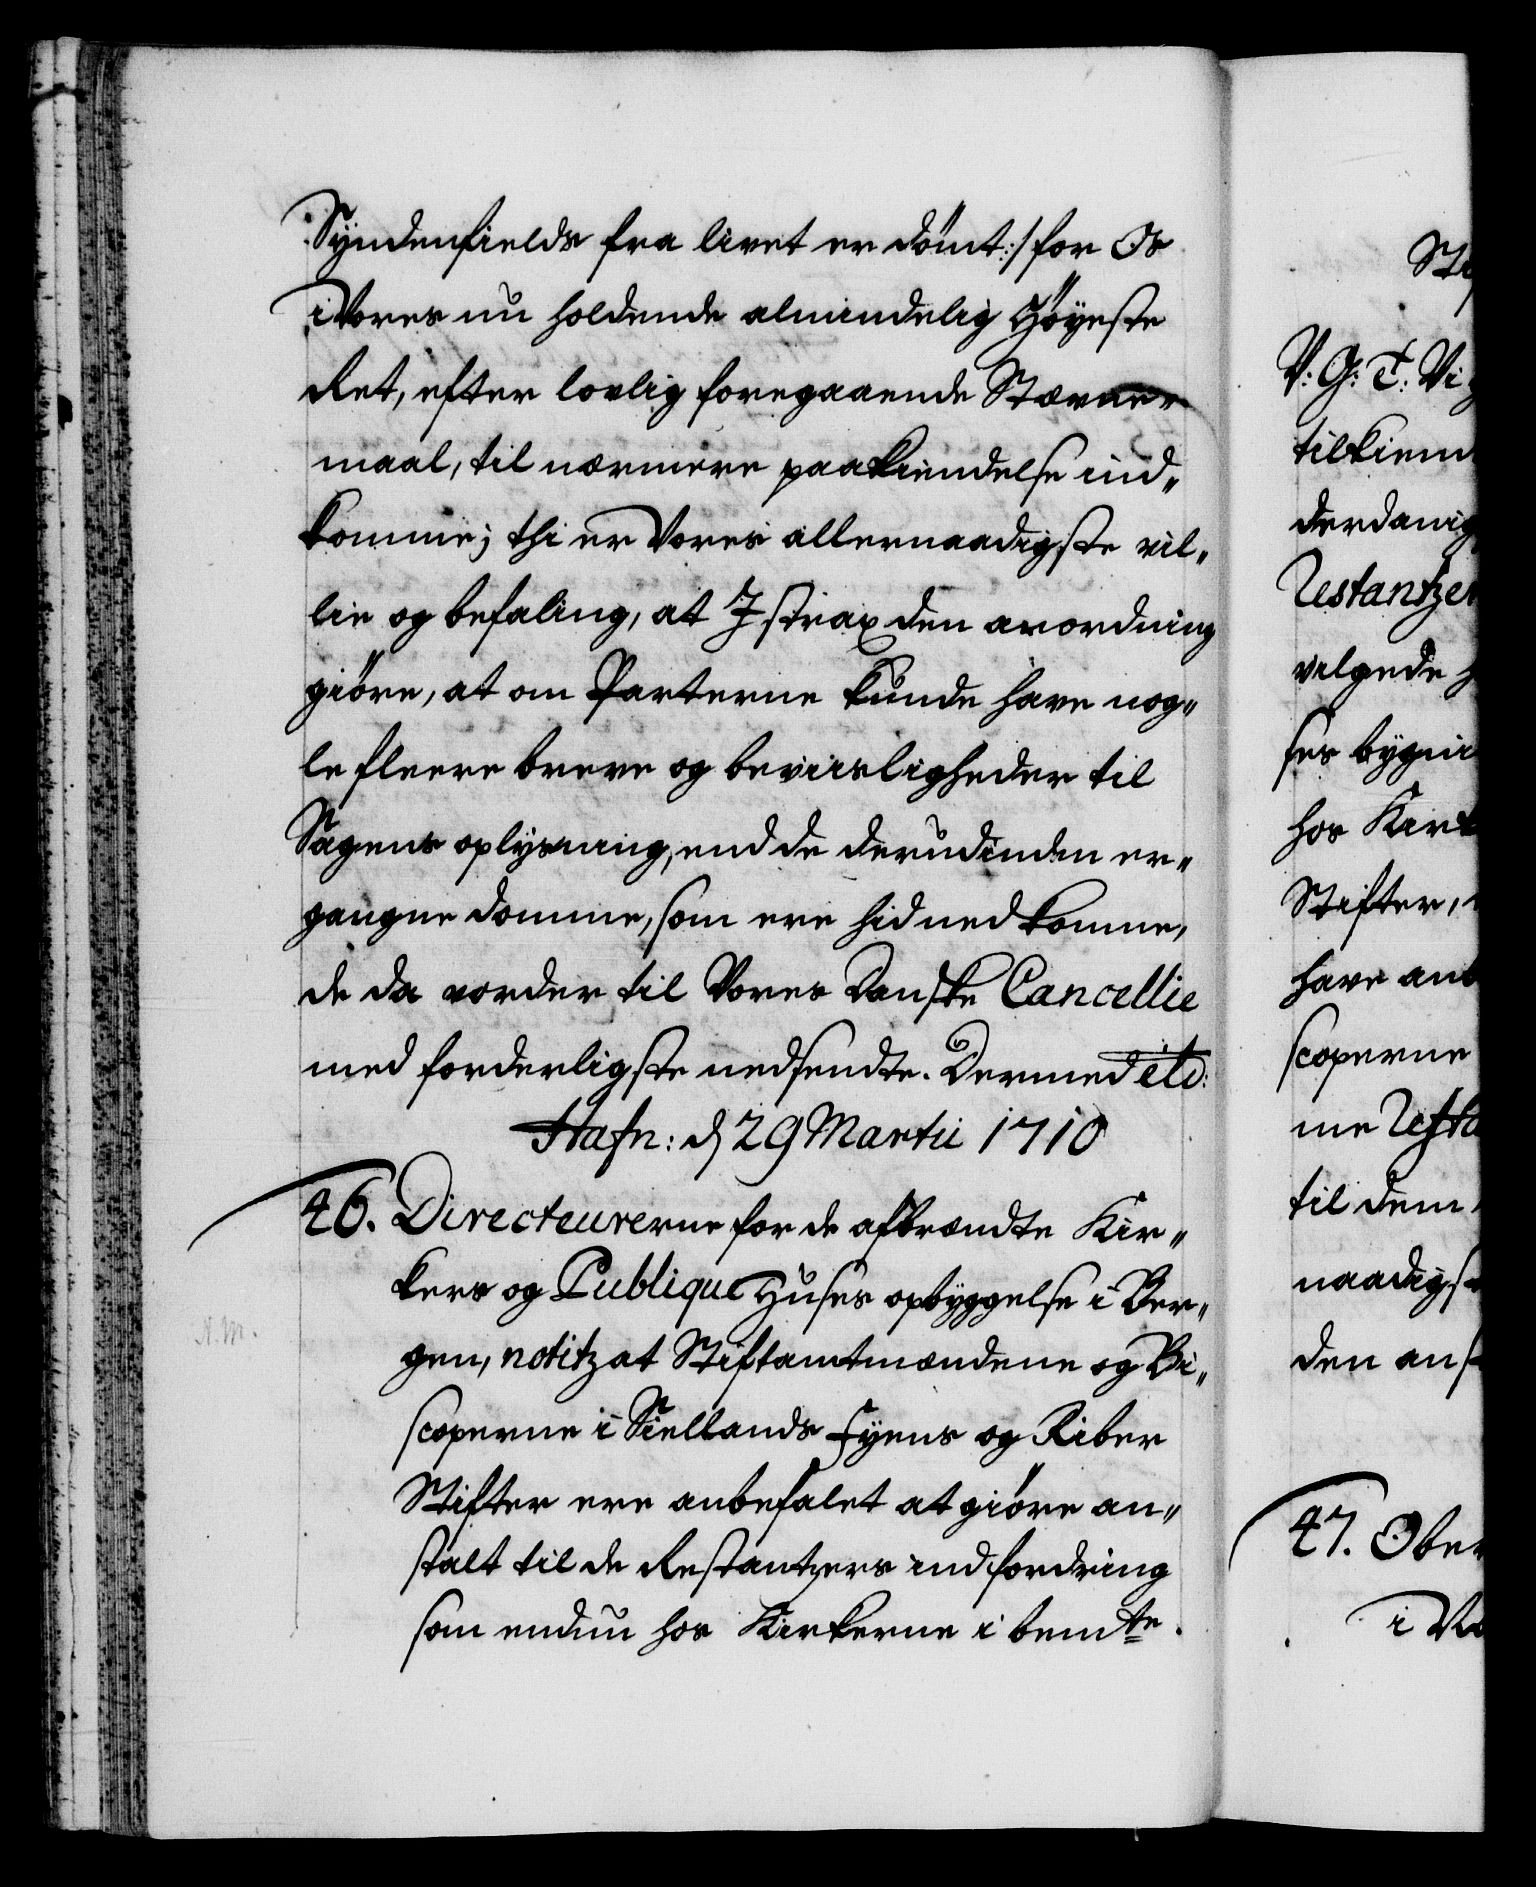 Syndenfields fra livet er dömt:/ for Os
i Vores nu holdende almindelig Höyeste
Ret, efter lovlig foregaaende Stævne-
maal, til nærmere paakiendelse ind„
komme; thi er Vores allernaadigste vil„
lie og befaling, at I strax den anordning
giöre, at om Parterne kunde have nog„
le fleere breve og beviisligheder til
Sagens oplysning, end de derudinden er„
gangne domme, som ere hid ned komne,
de da vorder til Vores Danske Cancellie
med forderligste nedsendte. Dermed etc:
Hafn: d 29 Martii 1710
46. Directeurerne for de afbrændte Kir„
kers og Publique Huses opbyggelse i Ber„
gen, notitz at Stiftamtmændene og Bi„
scoperne i Siellands Fyens og Riber
Stifter ere anbefalet at giöre an„
stalt til de Restantzers indfordring
som endnu hos Kirkerne i bemte.
A.M.
V: G: T: Vi
tilkiend
derdanig
Restantzer
vilgede
ses bygni
hos Kirk
Stifter,
have anb
scoperne
me Resta
til dem
naadigs
den ans
47. Ober
i No